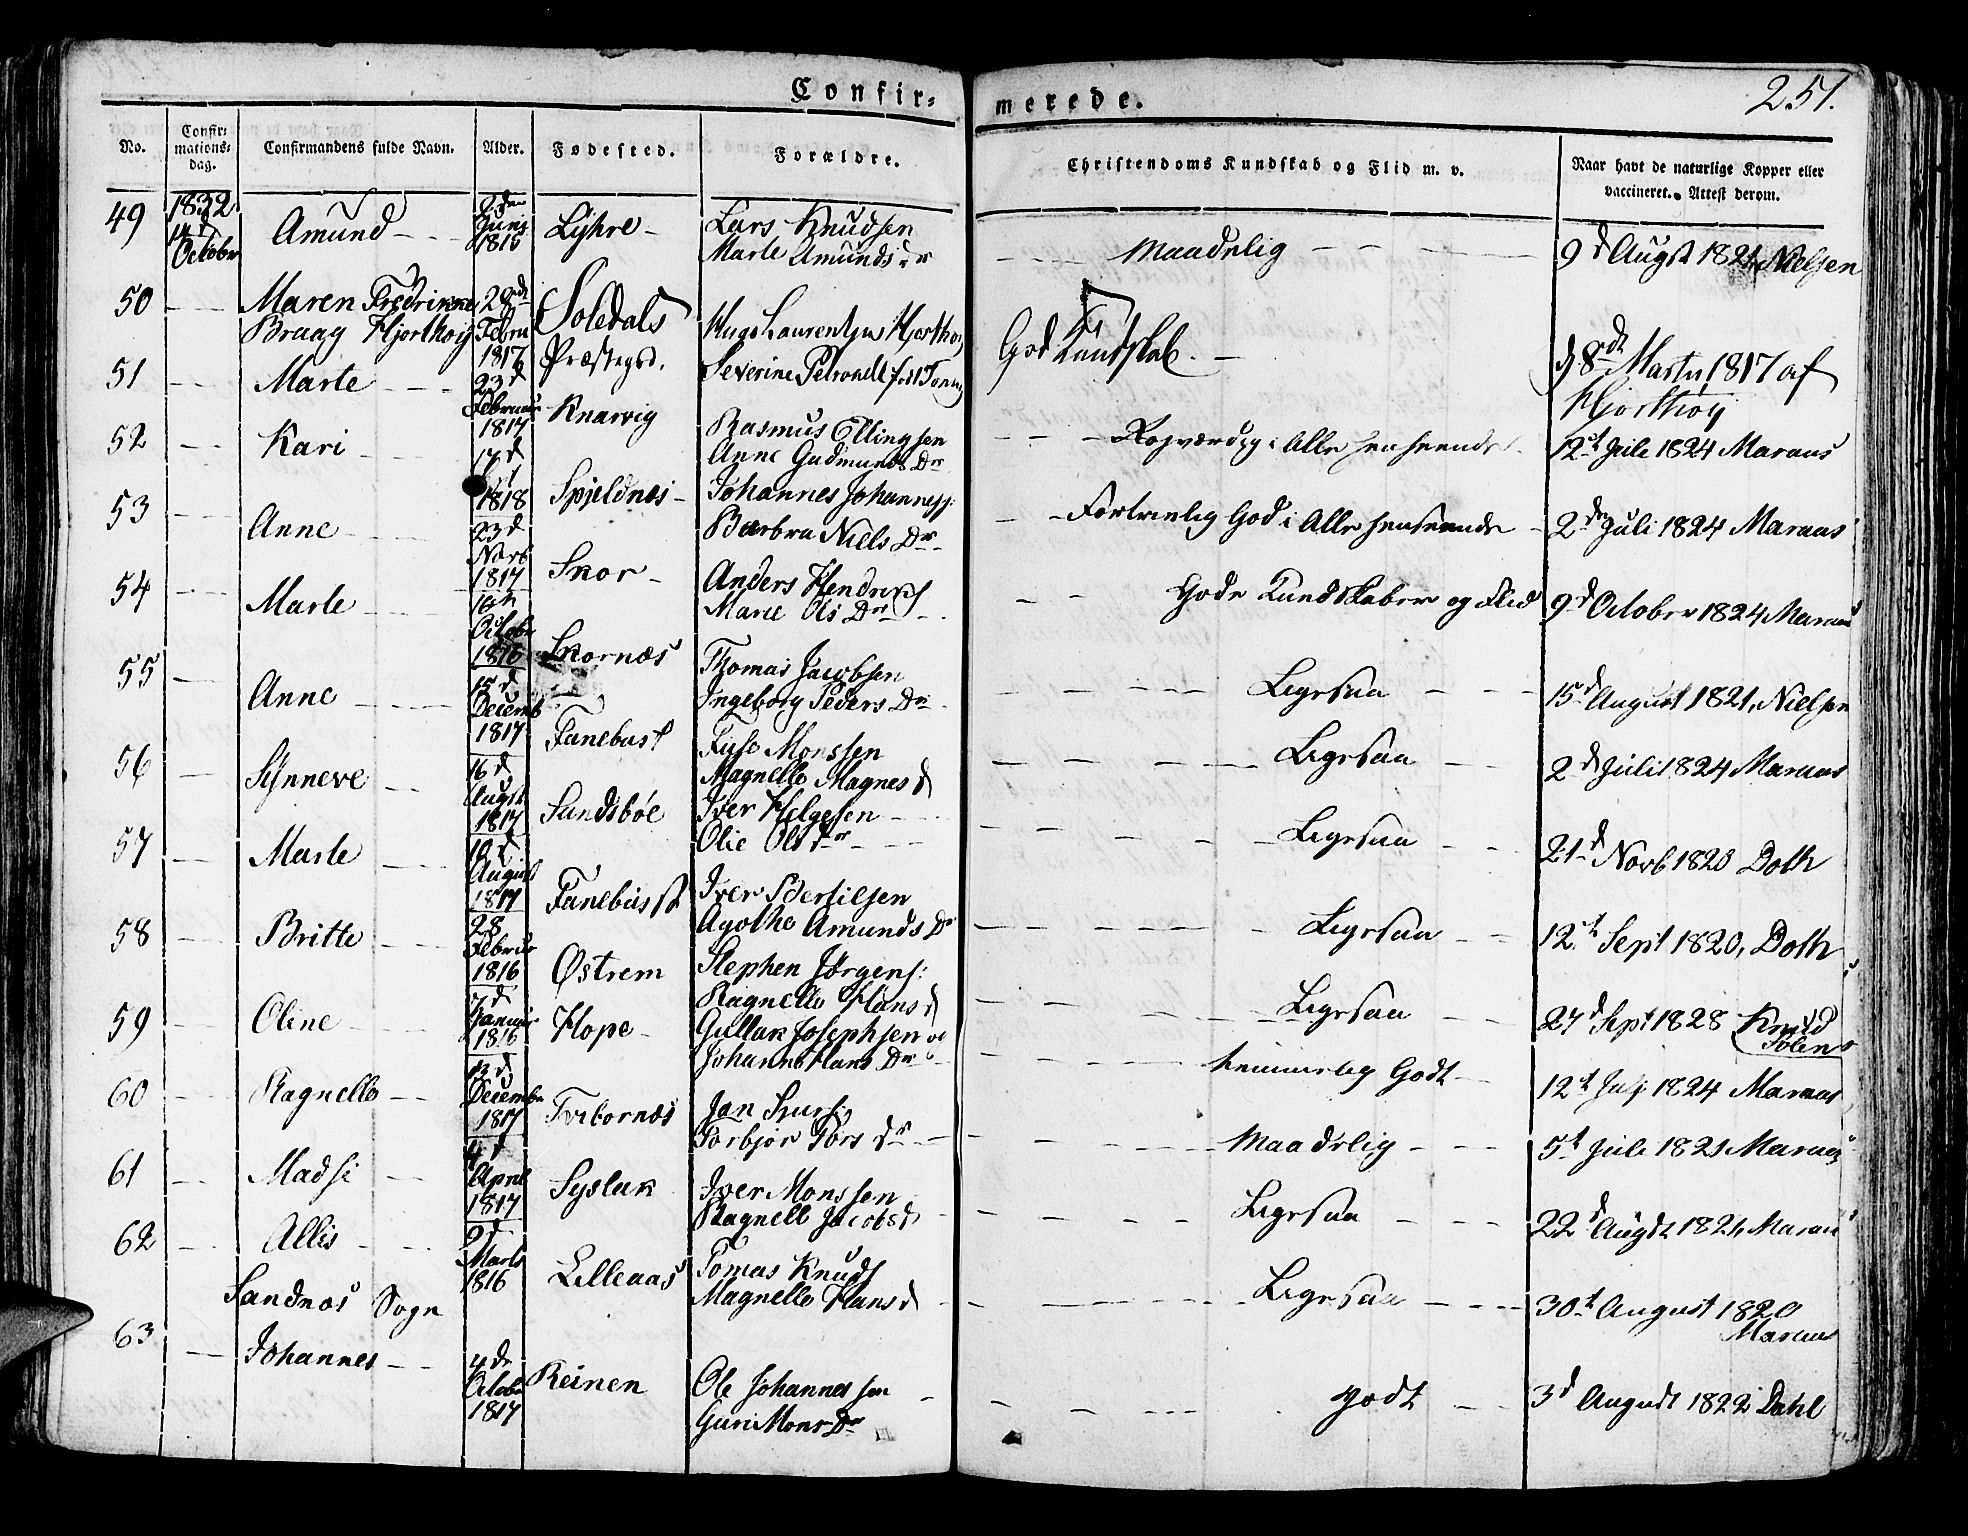 Confir-
merede.
251.
No.
Confir-
mations-
dag.
Confirmandens fulde Navn.
Alder.
Fødested.
Forældre.
Christendoms Kundskab og Flid m. v.
Naar havt de naturlige Kopper eller
vaccineret. Attest derom.
49 1832 14d October Amund Juni Lyhre Lars Knudsen
Marte Amunds Dr
Maadelig
9d Augst 1821, Nielsen
50 Maren Fredrikke
Braag Hjorthøy
28de Febru 1817
Soledals
Præstegrd.
Hugo Laurentius Hjorthøy
Severine Petronell
God Kundskab.
d 8de Marts 1817 af
Hjorthøy
51 Marte 23d Februar 1817 Knarvig Rasmus Ellingsen
Anne Gudmunds Dr
Rosværdig i Alle henseende
12t Juli 1824 Maraus
52 Kari 17d 1818 Spjeldnæs Johannes Johanness:
Barbra Niels Dr
Fortrinlig God i Alle henseende
2den Juli 1824 Maraas
53 Anne 23d Novb 1817 Skor Anders Hendriks
Marie Ols Dr
Gode Kundskaber og Flid
9d October 1824 Maraus
54 Marte October 1816 Skornæs Thomas Jacobsen
Ingeborg Peders Dr
Ligesaa
15d August 1821, Nielsen
55 Anne 15d Decemb 1817 Fanebust Fuse Monssen
Magnelle Magnes d
Ligesaa
2d Juli 1824 Maraas
56 Synneve 16d Augst 1817 Sandsbøe Iver Helgesen
Olie Ols dr
Ligesaa
21d Novb 1820 Doth
57 Marte August 1817 Fanebust Iver Bertilsen
Agothe Amunds Dr
Ligesaa
12t Sept 1820, Doth
58 Britte 28 Februar 1816 Østrem Stephen Jørgens:
Ragnelle Hans d
Ligesaa
27d Sept 1828 Knud
59 Oline 7d Januar 1816 Hope Gullak Josephsen og
Johanne Hans Dr
temmelig Godt
12t Juli 1824 Maraas
60 Ragnelle 13d December 1817 Tvibornæs
Torbjør Tors dr
Maadelig
5t Juli 1821 Maraus
61 Madsi 4d April 1817 Syslak Iver Monssen
Ragnell Jacobs d
Ligesaa
22d Augst 1821, Maraus
62 Allis Marts 1816 Lilleaas Tomas Knuds
Magnelle Hans d
Ligesaa
30t August 1820
Maraus
Sandnæs Sogn
63 Johannes 4de October 1817 Reinen Ole Johannessen
Guri Mons Dr
godt
3d August 1822 Dahl